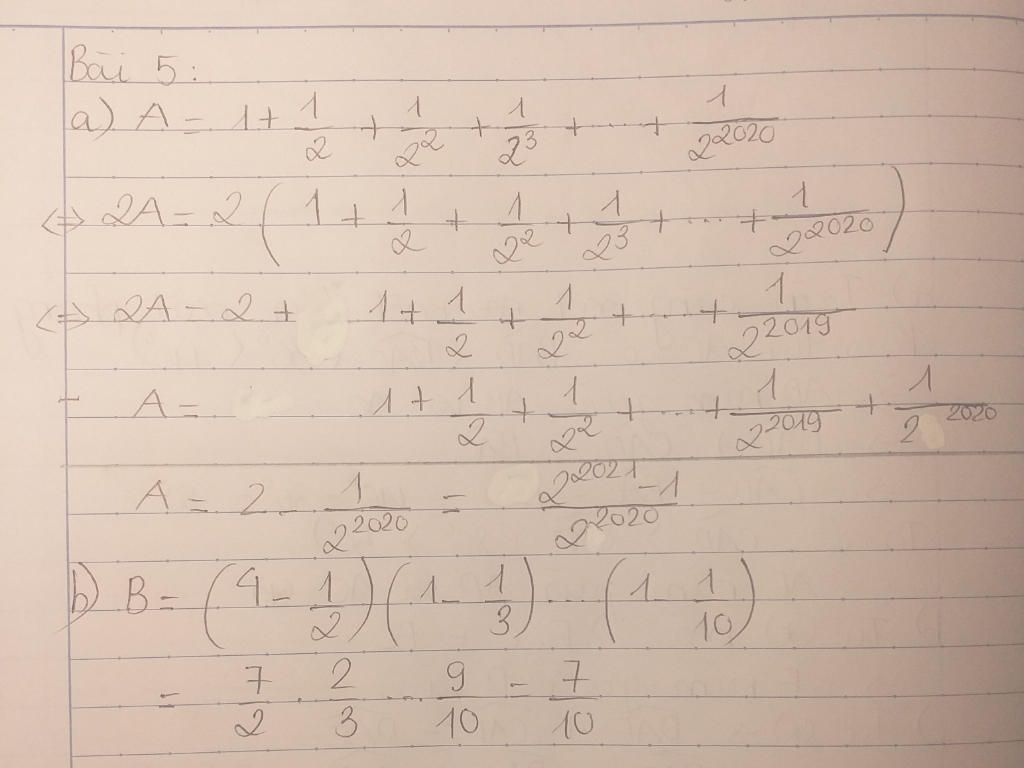 Bài 5:
a) A = 1 + 1/2 + 1/2² + 1/2³ + ... + 1/2²⁰²⁰
⇔ 2A = 2 ( 1 + 1/2 + 1/2² + 1/2³ + ... + 1/2²⁰²⁰ )
⇔ 2A = 2 + 1 + 1/2 + 1/2² + ... + 1/2²⁰¹⁹
- A = 1 + 1/2 + 1/2² + ... + 1/2²⁰¹⁹ + 1/2²⁰²⁰
A = 2 - 1/2²⁰²⁰ = (2²⁰²¹ - 1)/2²⁰²⁰
b) B = (4 - 1/2)(1 - 1/3) ... (1 - 1/10)
= 7/2 · 2/3 ... 9/10 = 7/10